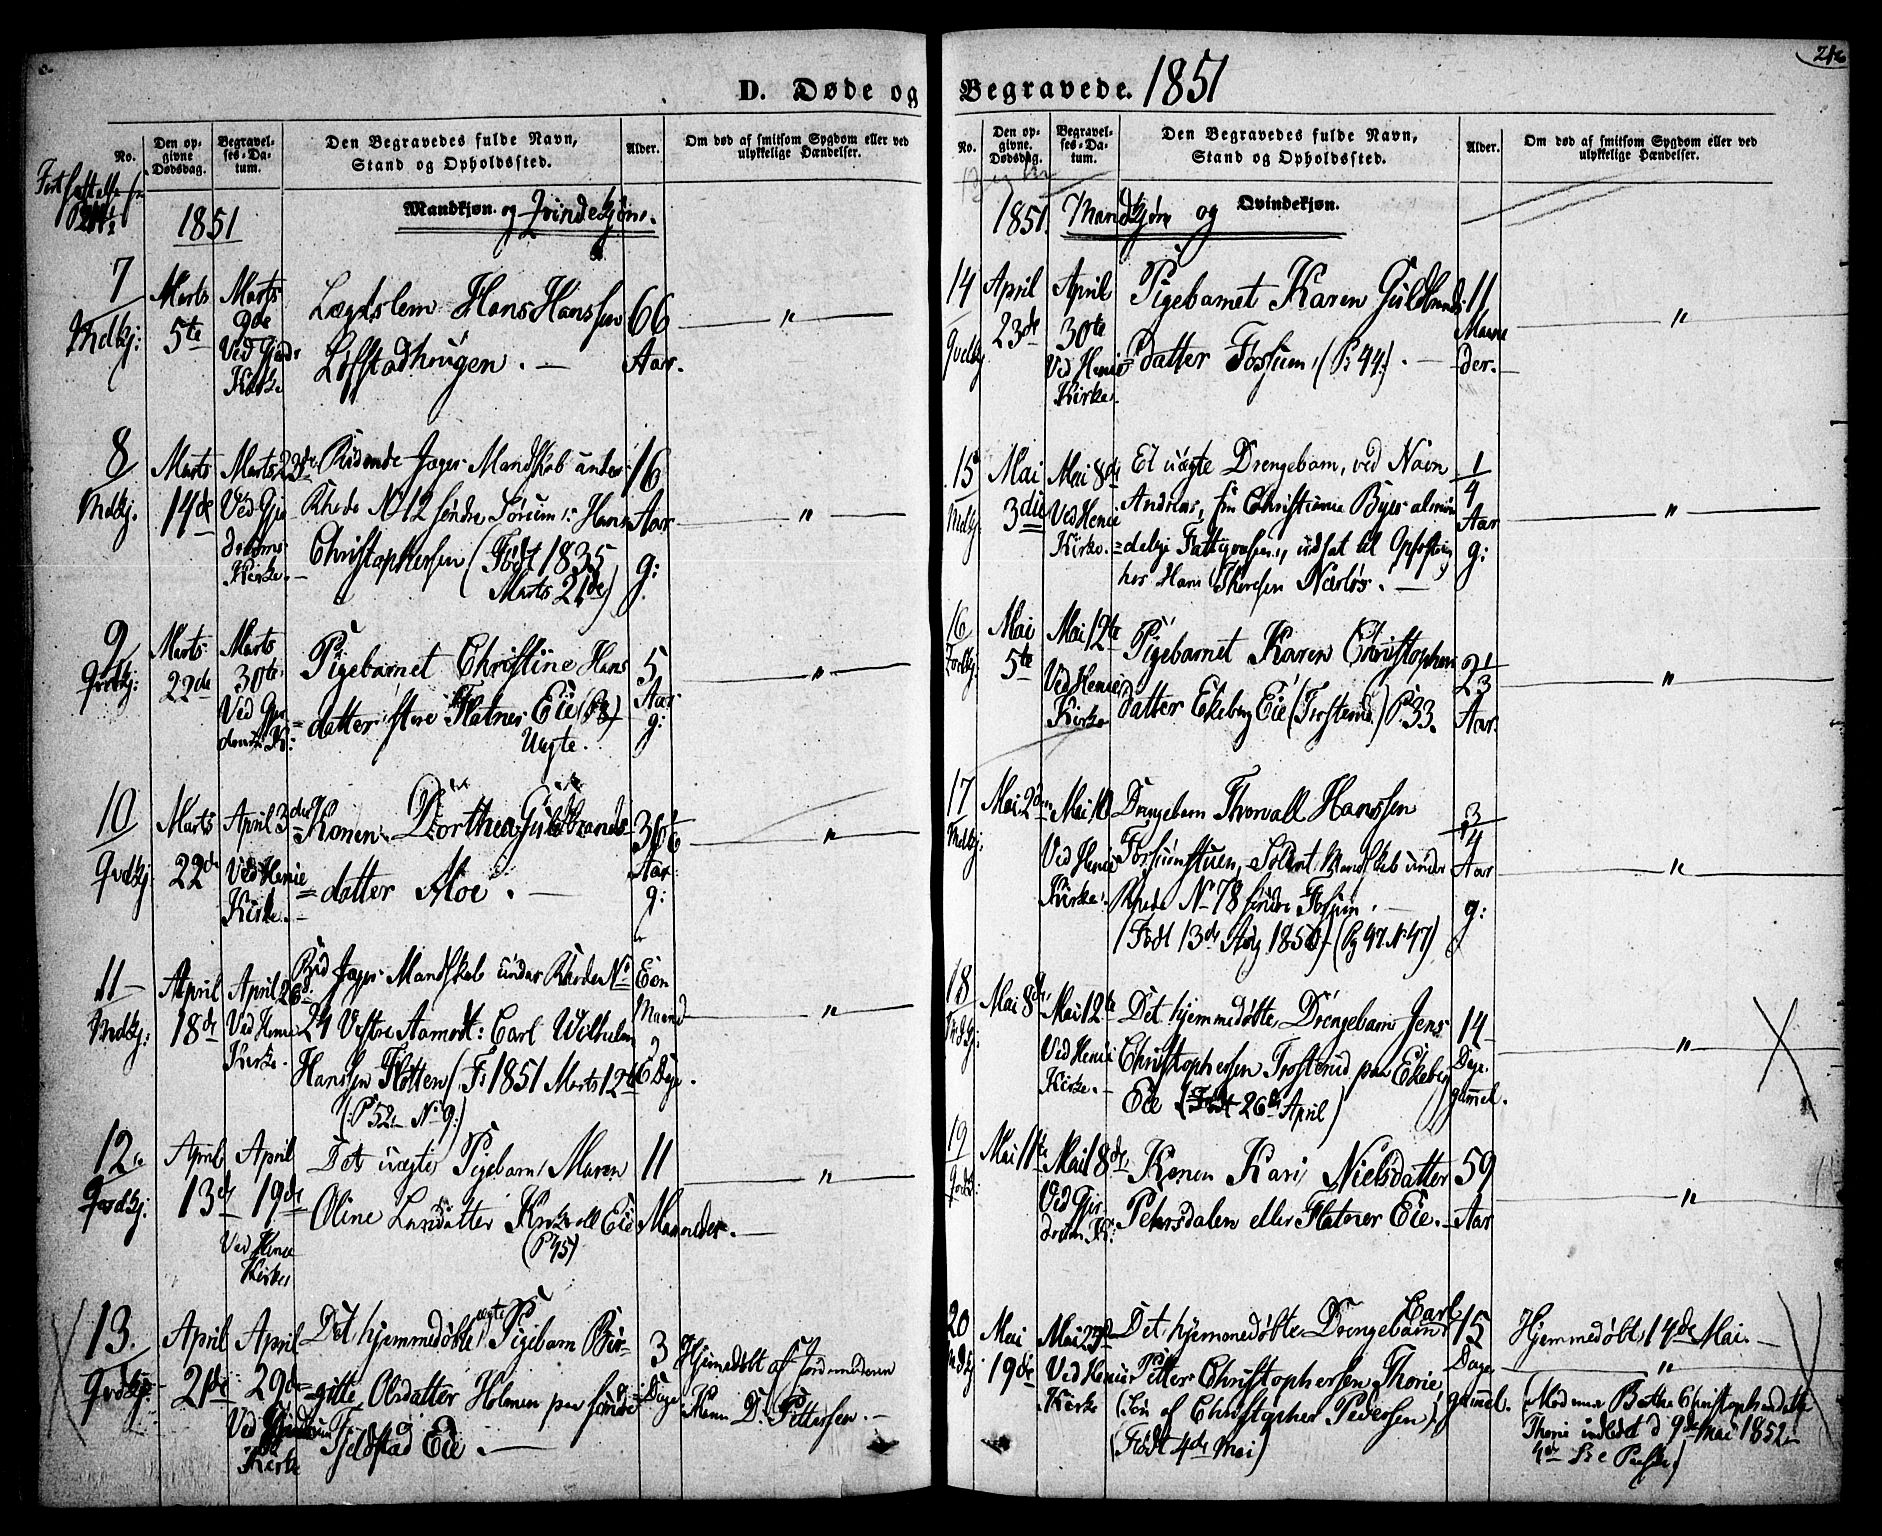 D. Døde og
No.
Den opgivne Dødsdag.
Begravelses-Datum.
Den Begravedes fulde Navn, Stand og Opholdssted.
Alder.
Om død af smitsom Sygdom eller ved ulykkelige Hændelser.
1851
Mandkjøn. og Qvindekjøn.
7
Mdkj:
Marts
5te
Marts
9de
Ved
Kirke
Lægdslem Hans Hanssen
Løfstadhougen. —
66
Aar.
"
8
Mdkj.
Marts
14de
Marts 23de
Ved Gje
droms
Kirke. —
Ridende Jæger Mandskab under
Rhode No 12 søndre Sørum: Hans
Christophersen (Født 1835
Marts 21de)
16
Aar
g:
"
9
Qvdkj:
Marts
22de
Marts
30te
Ved Gjer
drums K:
Pigebarnet Christine Hans
=datter store Flatner Eie
Uægte.
5
Aar
g:
"
10
Qvdkj
Marts
22de
April 3de
Ved Henie
Kirke. —
Konen Dorthea Guldbrands
=datter Moe. —
36
Aar
g:
"
11
Mdkj:
April
18de
April 26de
Ved Henie
Kirke.
Rid Jæger Mandskab under Rhoden No
24 Vestre Aamodt: Carl Wilhelm
Hanssen Flotten (F: 1851 Marts 12te
(P 52 No 9:)
Een
Maaned
6 Dage.
"
12.
Qvdkj.
April
13de
April
19de
Ved Henie
Kirke
Det uægte Pigebarn Maren
Oline Larsdatter Eie
(P 45)
11
Maaneder. —
"
13.
Qvdkj:
April
21de
April
29de
Ved
Kirke
Det hjemmedøbte ægte Pigebarn Bir=
=gitte Olsdatter Holmen paa søndre
Fjeldstad Eie. —
3
Dage
Hjemedøbt af Jordmoderen
D. Pettersen. —
Begravede. 1851
216
No.
Den opgivne Dødsdag.
Begravelses-Datum.
Den Begravedes fulde Navn, Stand og Opholdssted.
Alder.
Om død af smitsom Sygdom eller ved ulykkelige Hændelser.
1851.
Mandkjøn og Qvindekjøn.
14
Qvdkj.
April
23de
April
30te
Ved Henie
Kirke.
Pigebarnet Karen Guldbrands
=datter Fossum, (P: 44:). —
11
Maane
der.
"
15
Mdkj.
Mai
3die
Mai 8de
Ved Henie
Kirke.
Et uægte Drengebarn, ved Navn
Andreas, Christiania Byes almin
=delige Fattigvæsen, udsat til Opfostring
hos Hans Thoresen Nærløs. —
1/4
Aar
g:
"
16
Qvdkj.
Mai
5te
Mai 12te
Ved Henie
Kirke
Pigebarnet Karen Christophers
datter Ekeberg Eie (Trosterud) P: 33.
Aar.
"
17
Mdkj.
Mai 2den
Mai 10
Ved Henie
Kirke.
Drengebarn Thorvall Hanssen
Fossumstuen, Soldat Mandskab under
Rhode No 78 søndre Fossum.
(Født 13de Aug 1850) (Pg 47 No 47)
3/4
Aar
g:
"
18
Mai 8de
Mai 12te
Ved Henie
Kirke. —
Det hjemmedøbte Drengebarn Jens
Christophersen Trosterud paa Ekeberg
Eie (Født 26de April)
14
Dage
gammel.
"
19
Qvdkj:
Mai 11te
Mai 18de
Ved Gjer
drum K:
Konen Kari Nielsdatter
Petersdalen eller Flatner Eie. —
59
Aar
"
20
Mdkj
Mai
19de
Mai 29de
Ved Henie
Kirke
Det hjemmedøbte Drengebarn Carl
Petter Christophersen Thorie
(Søn af Christopher Pedersen)
(Født 4de Mai)
15
Dage
gammel.
Hjemmedøbt 14de Mai. —
"
(Moderen Berthe Christophersdatter
Thorie indledet d 9de Mai 1852